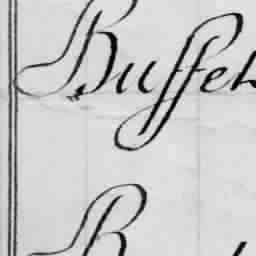 Buffet
B